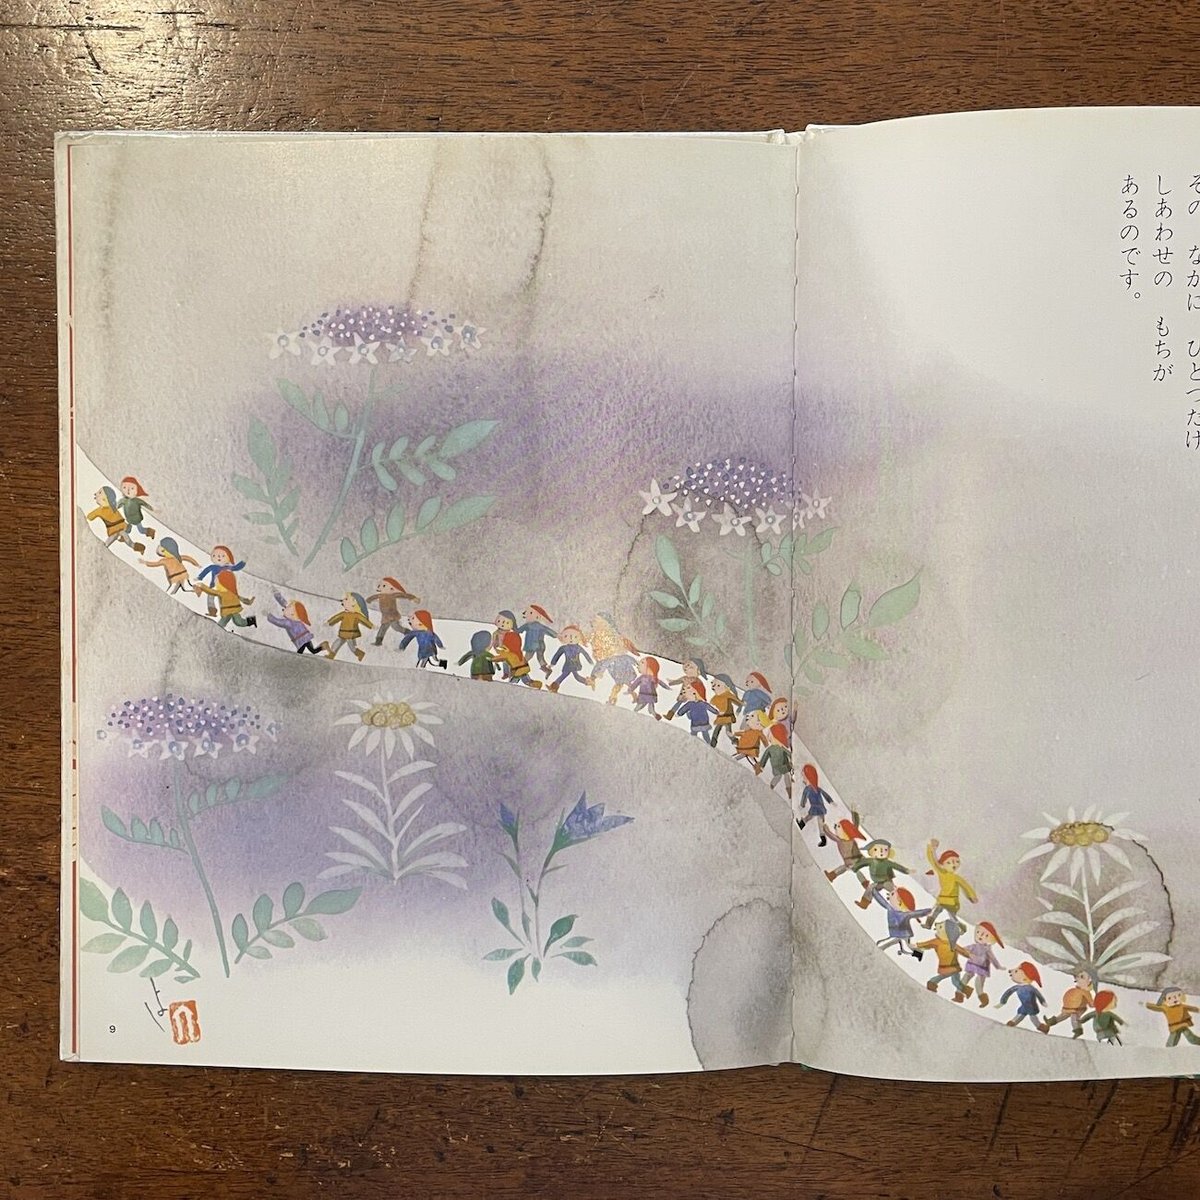 その なかに ひとつだけ
しあわせの もちが
あるのです。
9